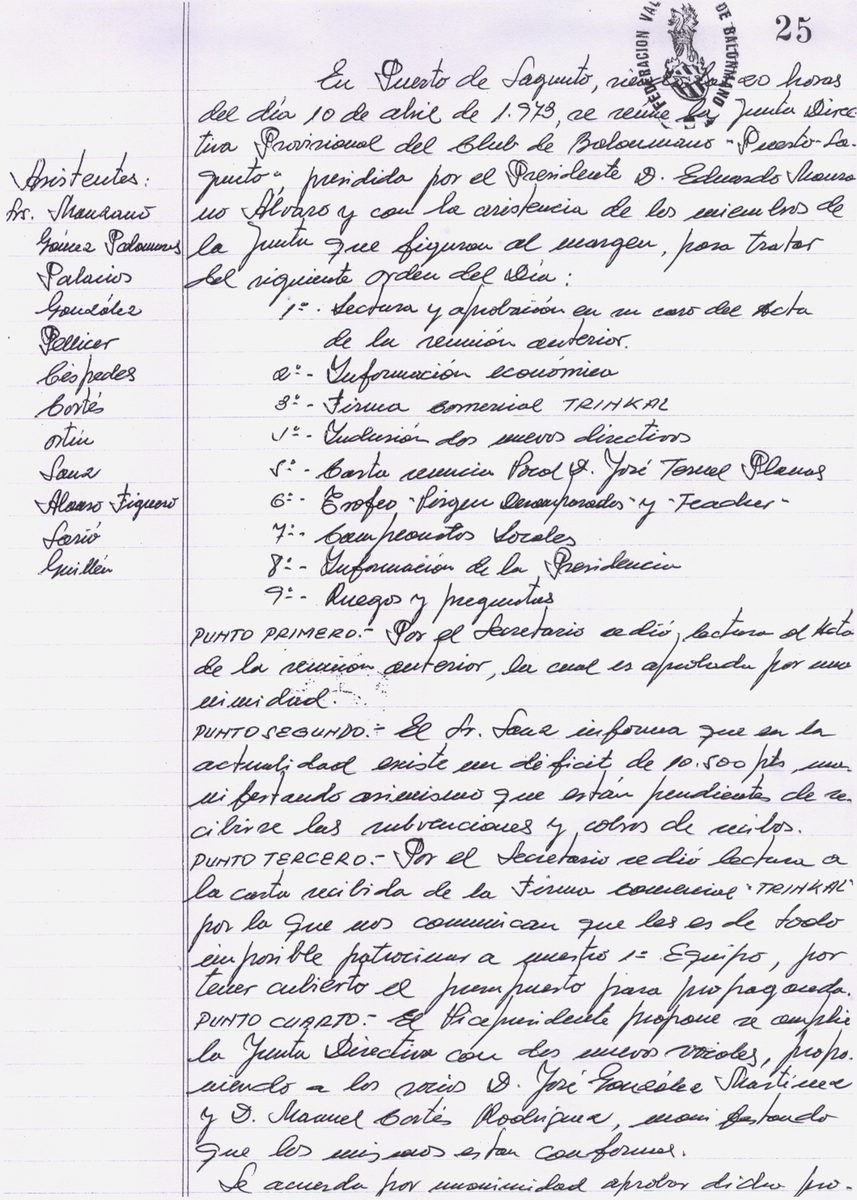 25
FEDERACION VAL
DE BALONMANO
En Puerto de Sagunto, 20 horas
del día 10 de abril de 1.973, se reune la Junta Direc-
tiva Provisional del Club de Balonmano "Puerto Sa-
gunto" presidida por el Presidente D. Eduardo Manza
no Álvaro y con la asistencia de los miembros de
la Junta que figuran al margen, para tratar
del siguiente orden del Día:
Asistentes:
Sr. Manzano
Gómez Palomares
Palacios
González
Pellicer
Céspedes
Cortés
Ortín
Sanz
Alvaro Figuero
Guillén
1º- Lectura y aprobación en su caso del Acta
de la reunión anterior.
2º- Información económica
3º- Firma comercial TRINKAL
Inclusión dos nuevos directivos
5º- Carta renuncia Vocal D. José Teruel Planas
6º- Trofeo "Virgen Desamparados" y "Teacher"
7º- Campeonatos Locales
8º- Información de la Presidencia
9º- Ruegos y preguntas
PUNTO PRIMERO.- Por el Secretario se dió lectura al Acta
de la reunión anterior, la cual es aprobada por una
nimidad.
PUNTO SEGUNDO.- El Sr. Sanz informa que en la
actualidad existe un déficit de 10.500 pts, ma-
nifestando asimismo que están pendientes de re-
cibirse las subvenciones y cobros de recibos.
PUNTO TERCERO.- Por el Secretario se dió lectura a
la carta recibida de la Firma comercial "TRINKAL"
por la que nos comunican que les es de todo
imposible patrocinar a nuestro 1º Equipo, por
tener cubierto el presupuesto para propaganda.
PUNTO CUARTO.- El Vicepresidente propone se amplie
la Junta Directiva con dos nuevos vocales, propo-
niendo a los socios D. José González Martínez
y D. Manuel Cortés Rodríguez, manifestando
que los mismos estan conformes.
Se acuerda por unanimidad aprobar dicha pro-